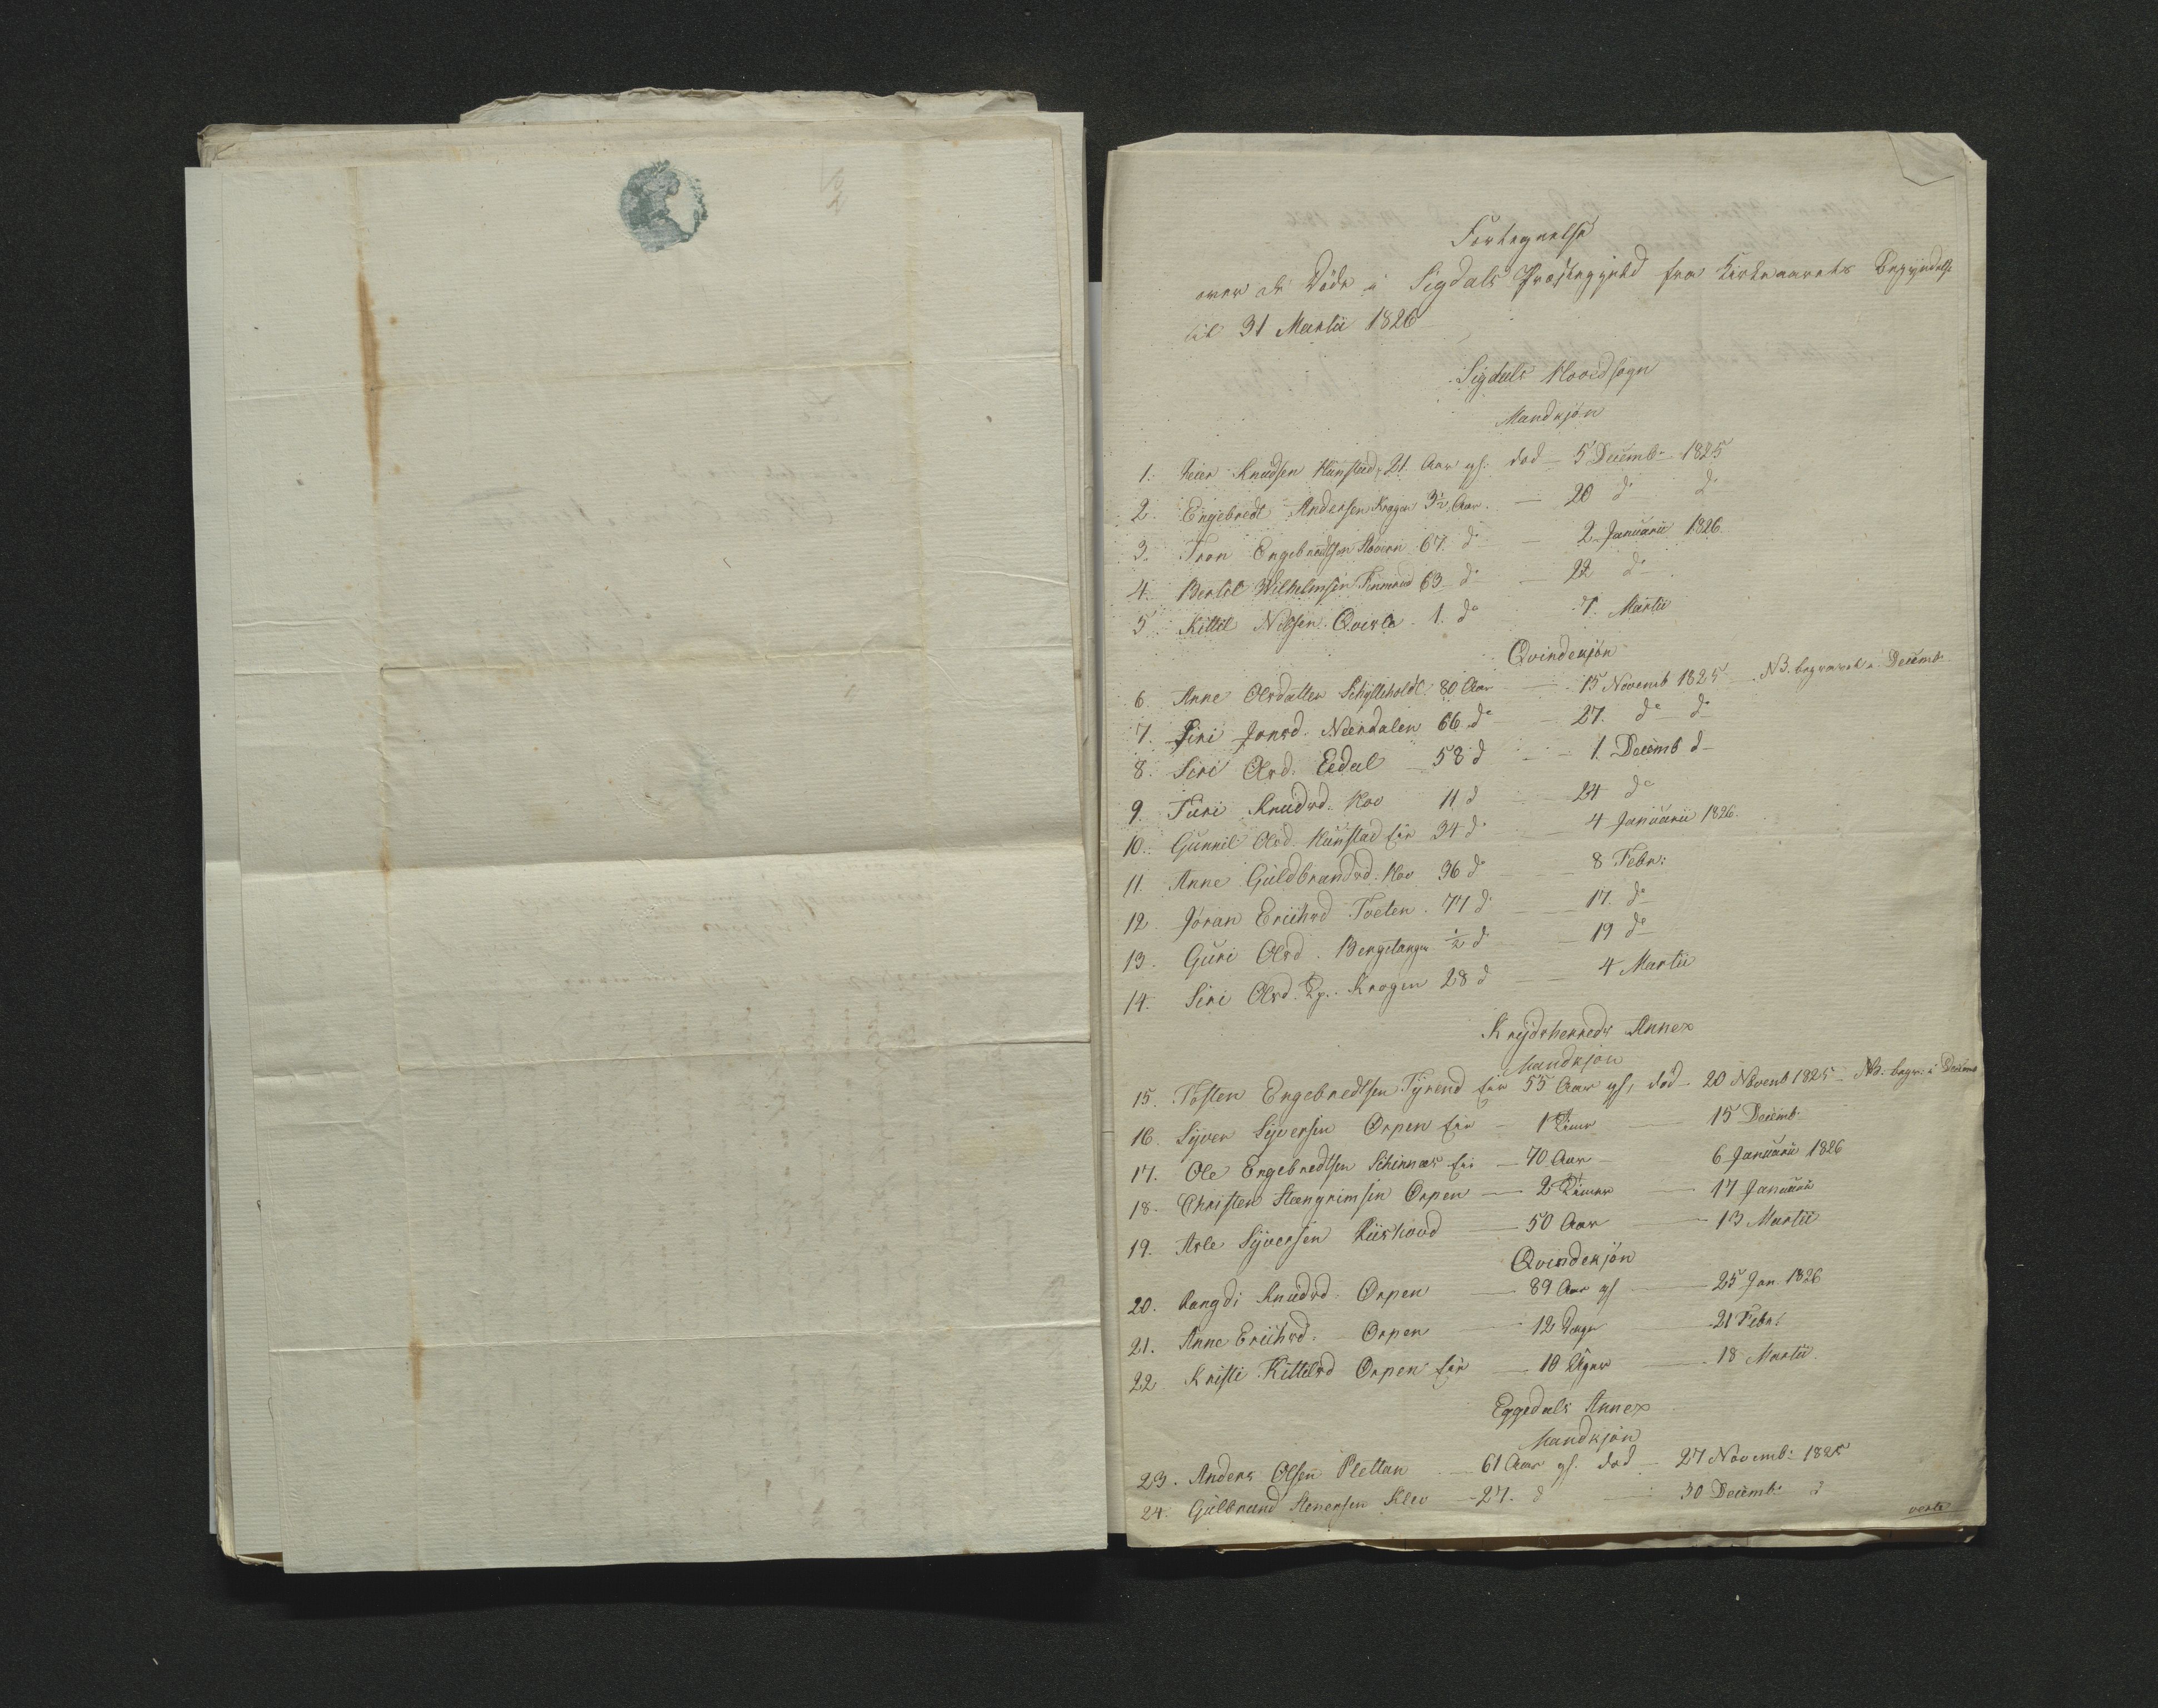 Fortegnelse
over de Døde i Sigdals Præstegjeld fra Kirkeaarets Begyndelse
til 31 Martii 1826
Sigdals Hovedsogn
Mandkjøn
1. Knudsen Hunstad, 21 Aar gl. død – 5 Decemb. 1825
2. Engebredt Andersen Kragen 3½ Aar. – 20 do do
3. Tron Engebredtsen 67 do – 2 Januarii 1826
4. Bertil Wilhelmsen 63 do – 22 do
5. Kittil Nilsen Qvisle 1. do 7. Martii
Qvindekjøn
6. Anne Olsdatter 80 Aar – 15 Novemb 1825 NB. begravet i Decemb.
7. Siri Jonsd. Neerdalen 66 do – 27. do do
8. Siri Olsd. Eedal – 58 d – 1. Decemb d
9. Turi Knudsd. Hov 11 d – 24 do
10. Gunnil Olsd. Hunstad Eie 34 do – 4 Januarii 1826.
11. Anne Guldbrandsd. Hov 36 do – 8 Febr:
12. Jøran Erichsd Tveten. 77 d – 17. do
13. Guri Olsd. ½ d – 19 do
14. Siri Olsd. Kragen 28 d – 4 Martii
Krydsherreds Annex
Mandkjøn
15. Tosten Engebredtsen Eie 55 Aar gl, død – 20 Novemb 1825 – NB. begr. i Decemb
16. Syver Syversen Ørpen Eie – 1 – 15 Decemb.
17. Ole Engebredtsen Schinnæs Eie – 70 Aar – 6 Januarii 1826
18. Christen Steengrimsen Ørpen – 2 – 17 Januarii
19. Asle Syversen Riishovd – 50 Aar – 13 Martii
Qvindekjøn
20. Rangdi Knudsd. Ørpen – 89 Aar gl – 25 Jan. 1826
21. Anne Erichsd. Ørpen – 12 Dage – 21 Febr:
22. Kristi Kittilsd Ørpen Eie – 10 Uger – 18 Martii.
Eggedals Annex
Mandkjøn
23. Anders Olsen Plettan – 61 Aar gl. død – 27 Novemb: 1825
24. Gulbrand Stenersen Klev – 27. d – 30 Decemb: d
verte